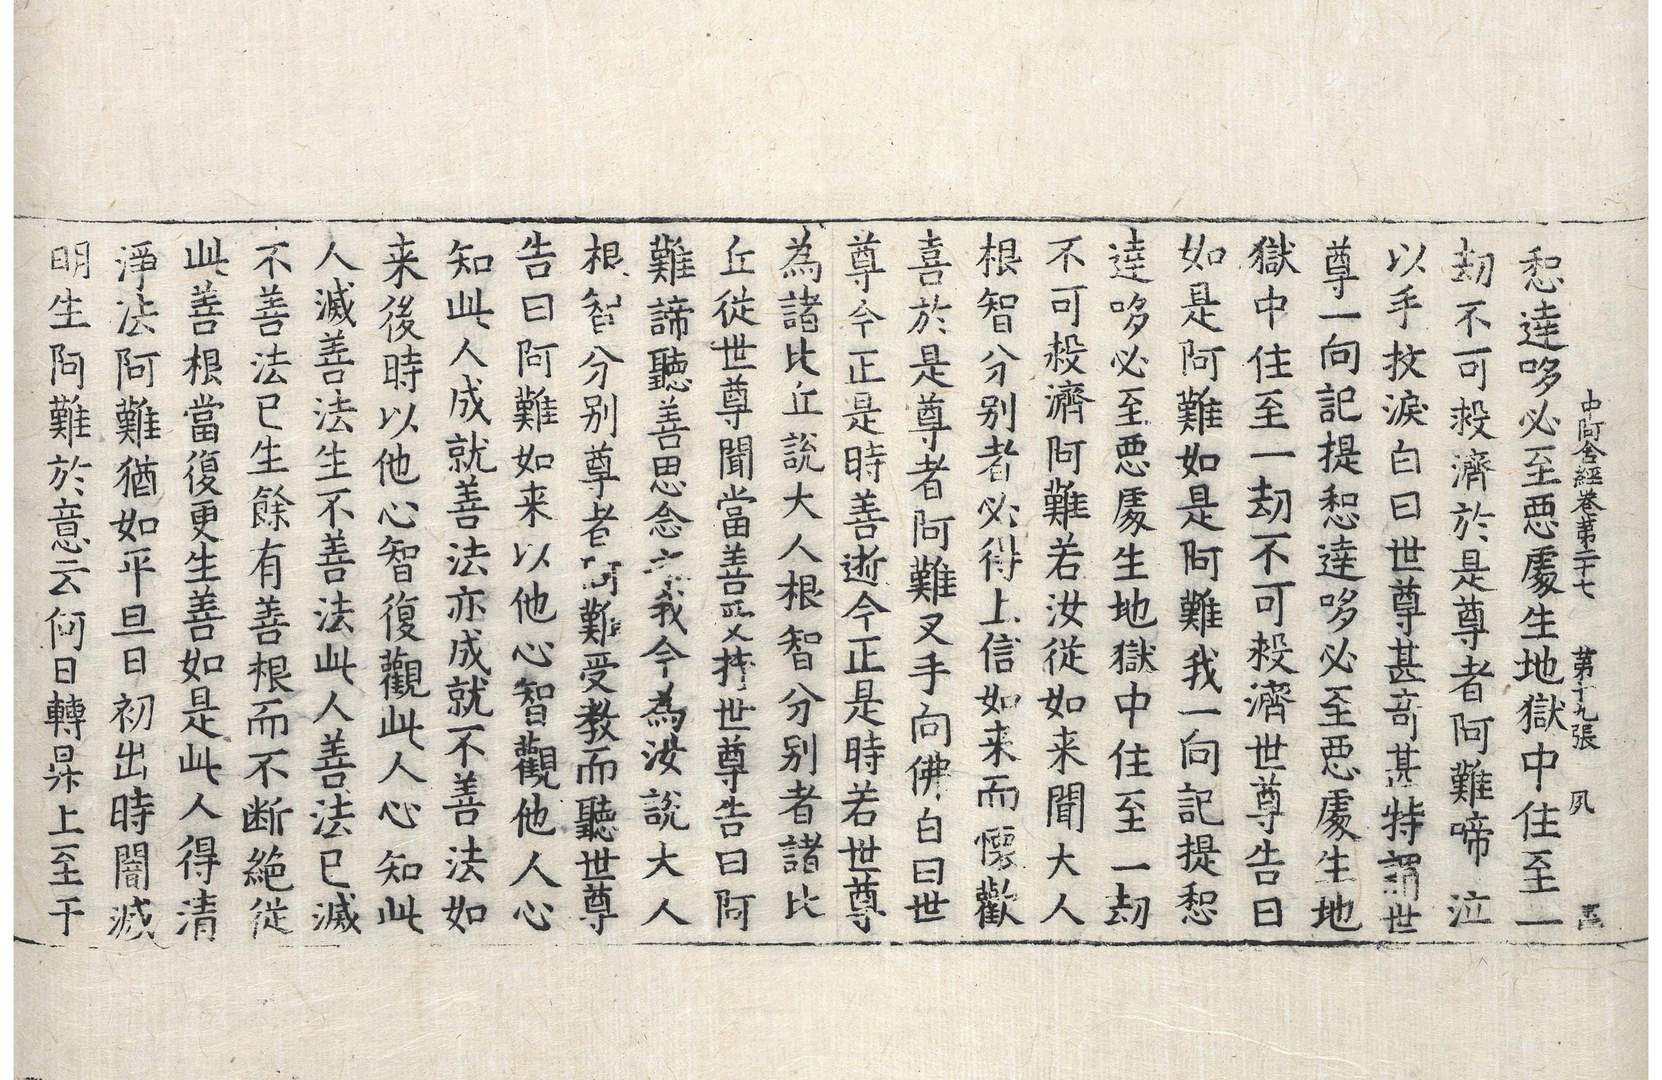 中阿含經卷第二十七　第十九張　夙
惒達哆必至惡處生地獄中住至一
劫不可救濟於是尊者阿難啼泣
以手抆淚白曰世尊甚奇甚特謂世
尊一向記提惒達哆必至惡處生地
獄中住至一劫不可救濟世尊告曰
如是阿難如是阿難我一向記提惒
達哆必至惡處生地獄中住至一劫
不可救濟阿難若汝從如来聞大人
根智分别者必得上信如来而懷歡
喜於是尊者阿難叉手向佛白曰世
尊今正是時善逝今正是時若世尊
為諸比丘說大人根智分别者諸比
丘從世尊聞當善受持世尊告曰阿
難諦聽善思念之我今為汝說大人
根智分别尊者阿難受教而聽世尊
告曰阿難如来以他心智觀他人心
知此人成就善法亦成就不善法如
来後時以他心智復觀此人心知此
人滅善法生不善法此人善法已滅
不善法已生餘有善根而不断絶從
此善根當復更生善如是此人得清
淨法阿難猶如平旦日初出時闇滅
明生阿難於意云何日轉昇上至于